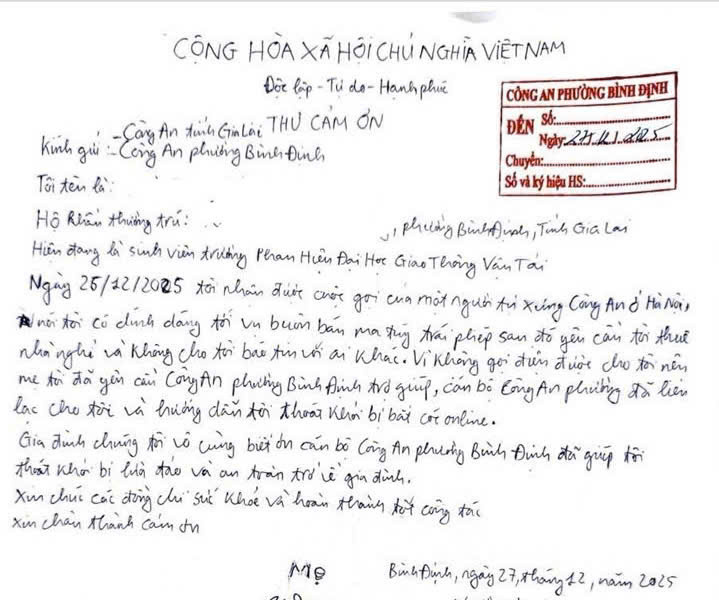 CỘNG HÒA XÃ HỘI CHỦ NGHĨA VIỆT NAM
Độc lập - Tự do - Hạnh phúc
THƯ CẢM ƠN
CÔNG AN PHƯỜNG BÌNH ĐỊNH
ĐẾN Số:
Ngày: 27/12/2025
Chuyển:
Số và ký hiệu HS:
Kính gửi: - Công An tỉnh Gia Lai
- Công An phường Bình Định
Tôi tên là:
Hộ khẩu thường trú: , phường Bình Định, Tỉnh Gia Lai
Hiện đang là sinh viên trường Phan Hiệu Đại Học Giao Thông Vận Tải
Ngày 25/12/2025 tôi nhận được cuộc gọi của một người tự xưng Công An ở Hà Nội,
nói tôi có dính dáng tới vụ buôn bán ma túy trái phép sau đó yêu cầu tôi thuê
nhà nghỉ và không cho tôi báo tin với ai khác. Vì không gọi điện được cho tôi nên
mẹ tôi đã yêu cầu Công An phường Bình Định trợ giúp, cán bộ Công An phường đã liên
lạc cho tôi và hướng dẫn tôi thoát khỏi bị bắt cóc online.
Gia đình chúng tôi vô cùng biết ơn cán bộ Công An phường Bình Định đã giúp tôi
thoát khỏi bị lừa đảo và an toàn trở về gia đình.
Xin chúc các đồng chí sức khỏe và hoàn thành tốt công tác
Xin chân thành cảm ơn
Mẹ
Bình Định, ngày 27, tháng 12, năm 2025